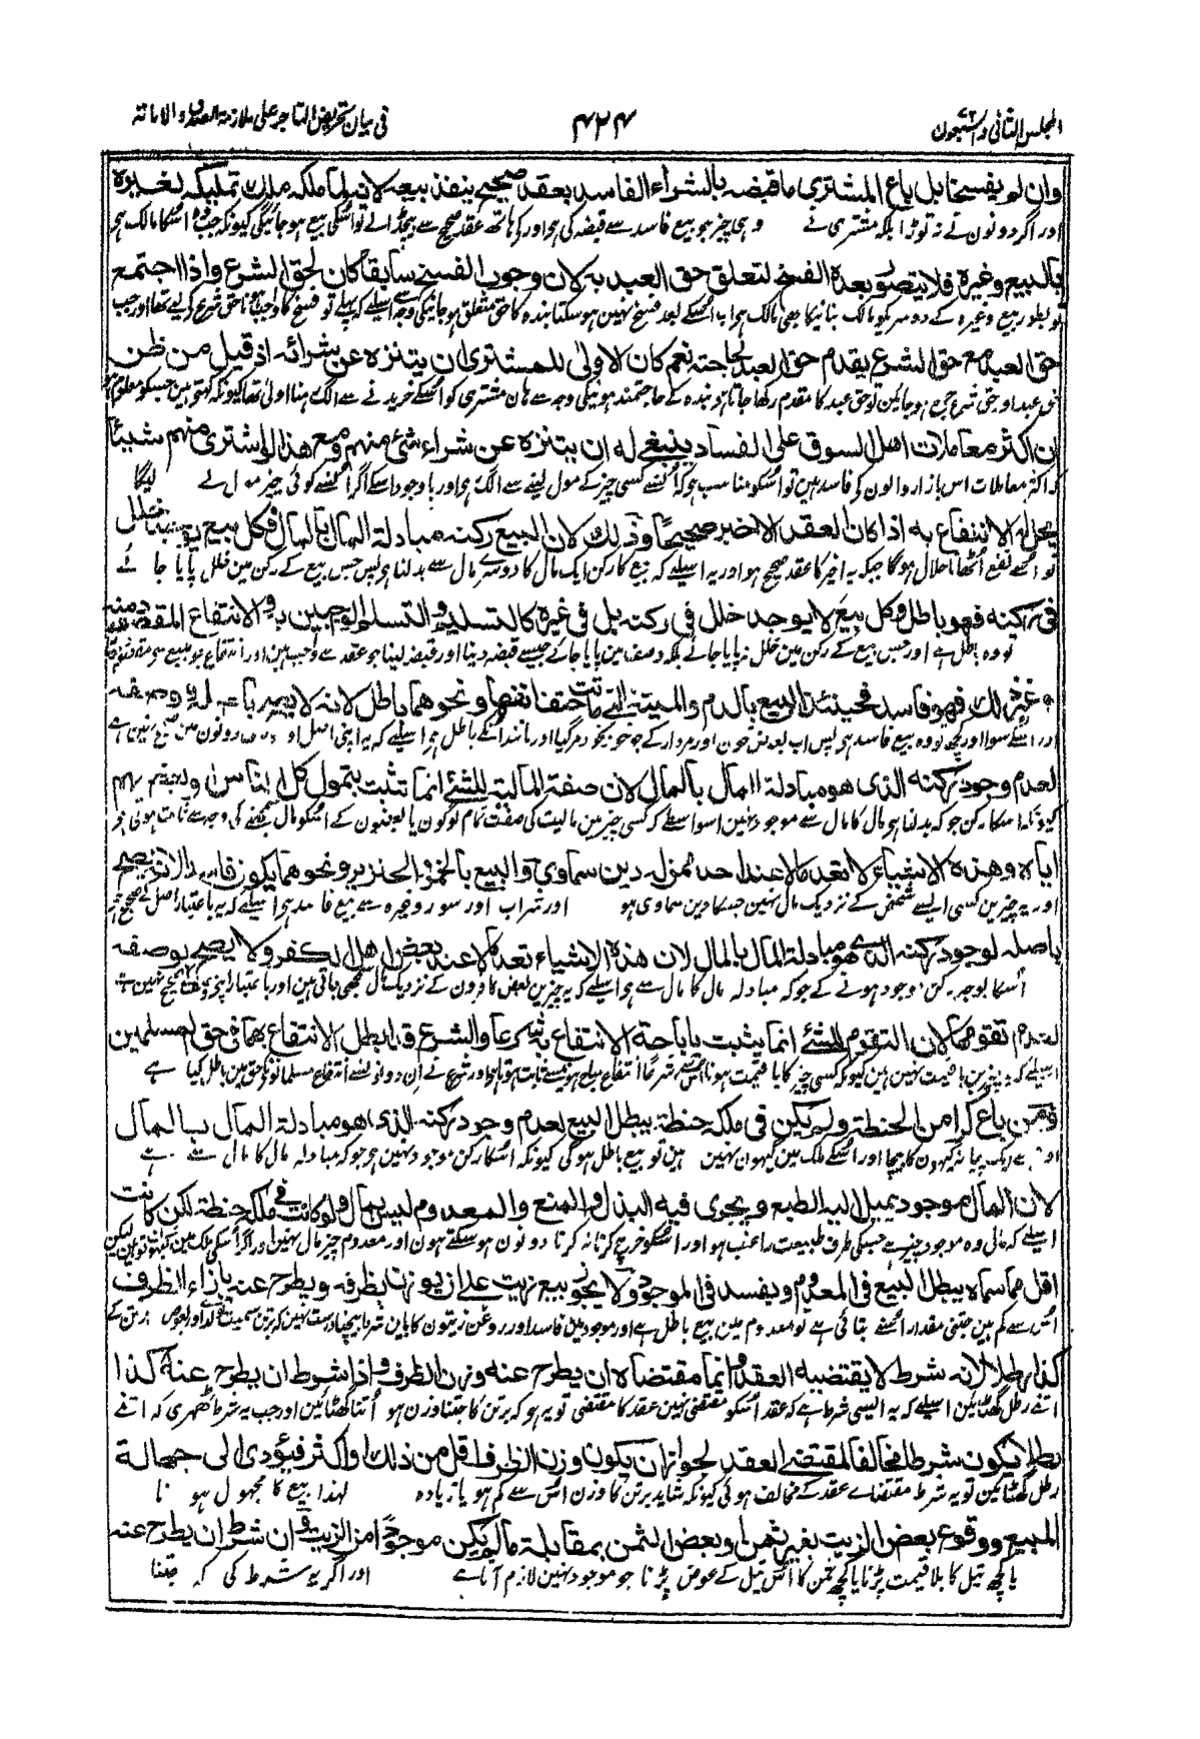 المجلس الثانی والسبعون
۴۲۴
فی بیان تحریض التاجر علی ملازمة الصدق والامانة
وان لم یفسخا بل باع المشتری ما قبضه بالشراء الفاسد بعقد صحیح ینفذ بیعه لانه لما ملکه ملک تملیکه لغیره
اور اگر دونون نے نہ توڑا بلکہ مشتری نے وہی چیز جو بیع فاسد سے قبضہ کی ہے اور کے ہاتھ عقد صحیح سے بیچ ڈالے تو اسکی بیع ہو جائیگی کیونکہ جب وہ اسکا مالک ہے
بالبیع وغیره فلا یتصور بعده الفسخ لتعلق حق العبد به لان وجوب الفسخ سابقا کان لحق الشرع واذا اجتمع
تو بطور بیع وغیرہ کے دوسرے کو مالک بنانے کا بھی مالک ہوا اب اسکے بعد فسخ نہین ہو سکتا بندہ کا حق متعلق ہو جانیکی وجہ سے اسلیے کہ پہلے تو فسخ کا واجب ہونا حق شرع کے لیے تھا اور جب
حق العبد مع حق الشرع یقدم حق العبد لحاجته نعم کان الاولی للمشتری ان یتنزه عن شرائه اذ قیل من ظن
حق عبد اور حق شرع جمع ہو جائین تو حق عبد کا مقدم رکھا جاتا ہے بندہ کے حاجتمند ہونیکی وجہ سے ہان مشتری کو اسکے خریدنے سے الگ رہنا اولی تھا کیونکہ کہتے ہین جسکو معلوم ہو
ان اکثر معاملات اهل السوق علی الفساد ینبغی له ان یتنزه عن شراء شئ منهم ومع هذا لو اشتری منهم شیئا
کہ اکثر معاملات اس بازار والون کے فاسد ہین تو اسکو مناسب ہے کہ اُنسے کسی چیز کے مول لینے سے الگ رہے اور باوجود اسکے اگر اُنسے کوئی چیز مول لے لیگا
یحل له الانتفاع به اذا کان العقد الاخیر صحیحا وذلک لان البیع رکنه مبادلة المال بالمال فکل بیع یوجد خلل
تو اُسے نفع اُٹھانا حلال ہوگا جبکہ یہ اخیر کا عقد صحیح ہو اور یہ اسلیے کہ بیع کا رکن ایک مال کا دوسرے مال سے بدلنا ہے پس جس بیع کے رکن مین خلل پایا جائے
فی رکنه فهو باطل وکل بیع لا یوجد خلل فی رکنه بل فی غیره کالتسلیم والتسلم الواجبین به والانتفاع المقصود منه
تو وہ باطل ہے اور جس بیع کے رکن مین خلل نہ پایا جائے بلکہ وصف مین پایا جائے جیسے قبضہ دینا اور قبضہ لینا جو عقد سے واجب ہین اور انتفاع جو بیع سے مقصود ہے
وغیر ذلک فهو فاسد فحینئذ البیع بالدم والمیتة التی ماتت حتف انفها ونحوهما باطل لانه لا یصیر باصله ووصفه
اور اسکے سوا اور کچھ تو وہ بیع فاسد ہے پس اب بعد اس خون اور مردار کے جو خود بخود مر گیا اور مانند انکے باطل ہے اسلیے کہ یہ اپنی اصل اور وصف دونون مین صحیح نہین ہے
لعدم وجود رکنه الذی هو مبادلة المال بالمال لان صفة المالیة للشئ انما تثبت بتمول کل الناس او بعضهم
کیونکہ اسکا رکن جو کہ بدلنا ہے مال کا مال سے موجود نہین اسواسطے کہ کسی چیز مین مالیت کی صفت تمام لوگون یا بعضون کے اسکو مال سمجھنے کی وجہ سے ثابت ہوتی ہے
ایاه وهذه الاشیاء لا تعد مالا عند احد ممن له دین سماوی والبیع بالخمر والخنزیر ونحوهما یکون فاسدا لانه یصح
اور یہ چیزین کسی ایسے شخص کے نزدیک مال نہین جسکا دین سماوی ہو اور شراب اور سور وغیرہ سے بیع فاسد ہے اسلیے کہ یہ باعتبار اصل کے صحیح ہے
باصله لوجود رکنه الذی هو مبادلة المال بالمال لان هذه الاشیاء تعد مالا عند بعض اهل الکفر ولا یصح بوصفه
اُسکا بوجہ رکن موجود ہونے کے جو کہ مبادلہ مال کا مال سے ہے اسلیے کہ یہ چیزین بعض کافرون کے نزدیک مال سمجھی جاتی ہین اور باعتبار اپنے وصف کے صحیح نہین ہے
لعدم تقومها لان التقوم للشئ انما یثبت باباحة الانتفاع به شرعا والشرع قد ابطل الانتفاع بهما فی حق المسلمین
اسلیے کہ یہ چیزین باقیمت نہین ہین کیونکہ کسی چیز کا باقیمت ہونا اُس سے شرعا انتفاع مباح ہونیسے ثابت ہوتا ہے اور شرع نے ان دونون سے انتفاع مسلمانونکے حق مین باطل کیا ہے
فمن باع کرا من الحنطة ولم یکن فی ملکه حنطة یبطل البیع لعدم وجود رکنه الذی هو مبادلة المال بالمال
اور جسنے ایک پیمانہ گیہون کا بیچا اور اُسکے ملک مین گیہون نہین ہین تو بیع باطل ہوگی کیونکہ اسکا رکن موجود نہین ہے جو کہ مبادلہ مال کا مال سے ہے
لان المال موجود یمیل الیه الطبع ویجری فیه البذل والمنع والمعدوم لیس بمال ولو کانت فی ملکه حنطة لکن کانت
اسلیے کہ مال وہ موجود چیز ہے جسکی طرف طبیعت راغب ہو اور اُسکو خرچ کرنا نہ کرنا دونون ہو سکتے ہون اور معدوم چیز مال نہین اور اگر اُسکی ملک مین گیہون تو ہین لیکن
اقل مما سماه یبطل البیع فی المعدوم ویفسد فی الموجود ولا یجوز بیع زیت علی ان یوزن بظرفه ویطرح عنه بازاء الظرف
اُس سے کم ہین جتنی مقدار اُسنے بتائی ہے تو معدوم مین بیع باطل ہے اور موجود مین فاسد اور روغن زیتون کا باین شرط بیچنا درست نہین کہ برتن سمیت تولے اور بعوض برتن کے
کذا رطلا لانه شرط لا یقتضیه العقد وانما مقتضاه ان یطرح عنه وزن الظرف واذا شرط ان یطرح عنه کذا
اتنے رطل گھٹائین اسلیے کہ یہ ایسی شرط ہے کہ عقد اُسکو مقتضی نہین عقد کا مقتضی تو یہ ہے کہ برتن کا جتنا وزن ہو اُتنا گھٹائین اور جب یہ شرط ٹھہری کہ اتنے
رطلا یکون شرطا مخالفا لمقتضی العقد لجواز ان یکون وزن الظرف اقل من ذلک او اکثر فیؤدی الی جهالة
رطل گھٹائین تو یہ شرط مقتضاے عقد کے مخالف ہوئی کیونکہ شاید برتن کا وزن اُس سے کم ہو یا زیادہ لہذا بیع کا مجہول ہونا
المبیع ووقوع بعض الزیت بغیر ثمن او بعض الثمن بمقابلة ما لم یکن موجودا من الزیت وان شرط ان یطرح عنه
یا کچھ تیل کا بلا قیمت پڑنا یا کچھ ثمن کا اُس تیل کے عوض پڑنا جو موجود نہین لازم آتا ہے اور اگر یہ شرط کی کہ جتنا